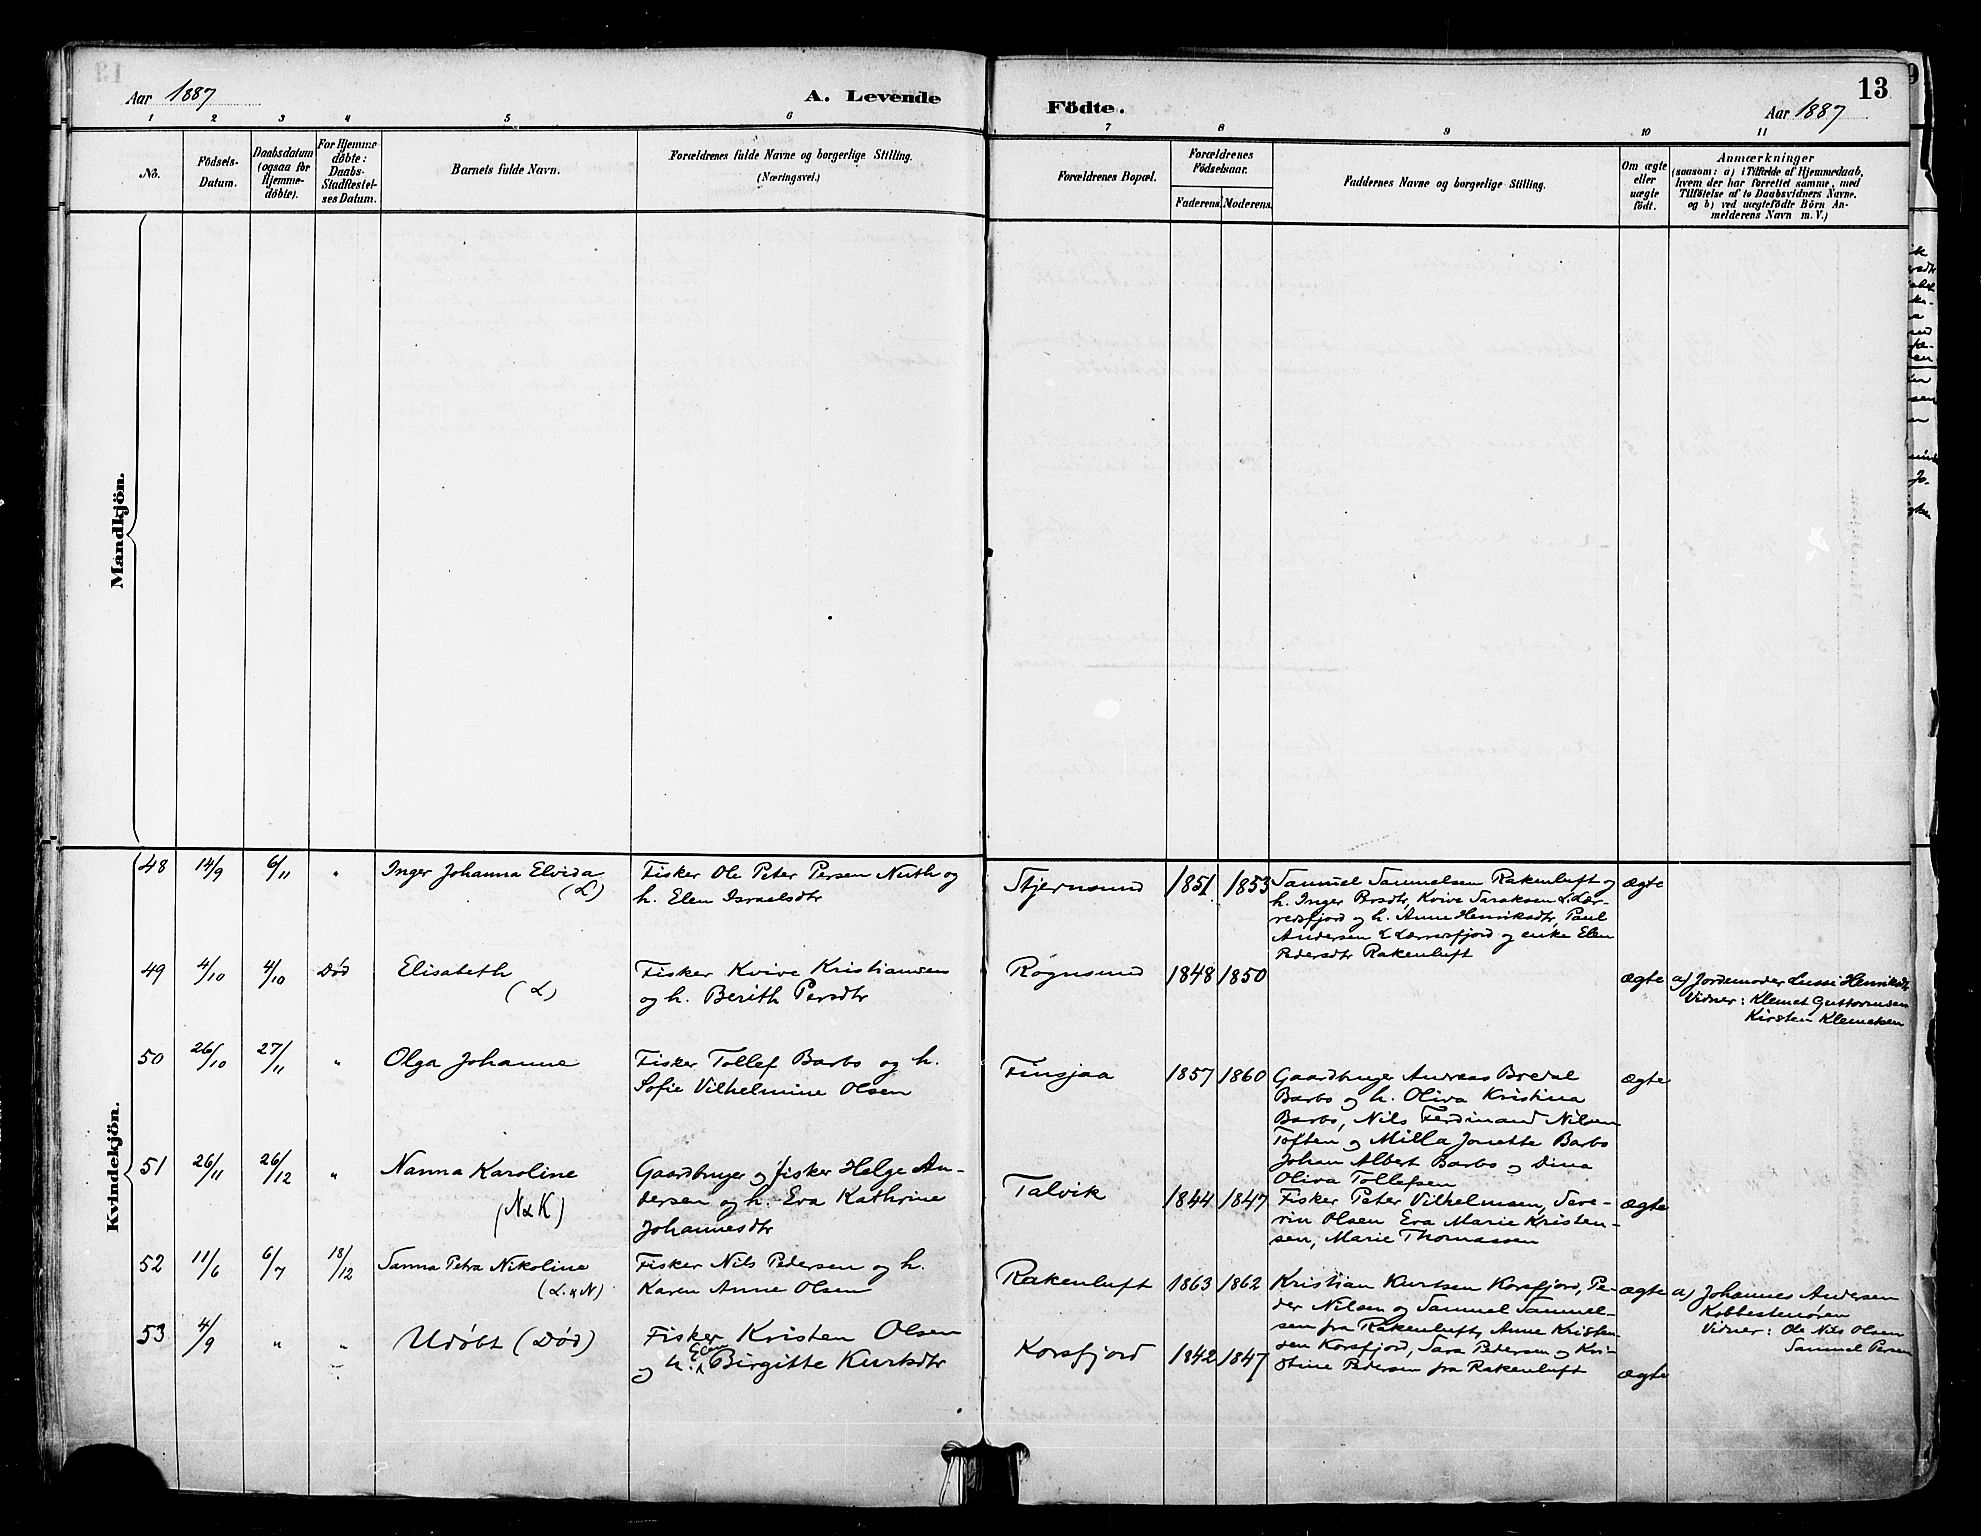 13
Aar 1887
A. Levende
Födte.
Aar 1887
1 2 3 4 5 6 7 8 9 10 11
No.
Födsels-
Datum.
Daabsdatum
(ogsaa for
Hjemme-
döbte).
For Hjemme
döbte:
Daabs-
Stadfæstel-
ses Datum.
Barnets fulde Navn.
Forældrenes fulde Navne og borgerlige Stilling.
(Næringsvei.)
Forældrenes Bopæl.
Forældrenes
Födselsaar.
Faderens.
Moderens.
Faddernes Navne og borgerlige Stilling.
Om ægte
eller
uægte
födt.
Anmærkninger
(saasom: a) i Tilfælde af Hjemmedaab,
hvem der har forrettet samme, med
Tilföielse af to Daabsvidners Navne.
og b) ved uægtefödte Börn An-
melderens Navn m. V.)
Mandkjön.
Kvindekjön.
48 14/9 6/11 "
Inger Johanna Elvida
(L)
Fisker Ole Peter Persen Nuth og
h. Elen Israelsdtr
Stjernsund 1851 1853
Samuel Samuelsen Rakenluft og
h. Inger Prsdtr, Kvive Saraksen L Lær-
redsfjord og h. Anne Henriksdtr, Paul
Andersen L Lærredsfjord og enke Elen
Pedersdtr Rakenluft
ægte
49 4/10 4/10 Död
Elisabeth
(L)
Fisker Kvive Kristiansen
og h. Berith Persdtr
Rognsund 1848 1850
ægte
a) Jordemoder Lussi Henriksdtr
Vidner: Klemet Guttormsen
Kirsten Klemetsen
50 26/10 27/11 "
Olga Johanne
Fisker Tollef Barbo og h.
Sofie Vilhelmine Olsen
Finsjaa 1857 1860
Gaardbruger Andreas Bredal
Barbo og h. Oliva Kristina
Barbo, Nils Ferdinand Nilsen
Toften og Milla Jonette Barbo
Johan Albert Barbo og Dina
Oliva Tollefsen
ægte
51 26/11 26/12 "
Nanna Karoline
(N & K)
Gaardbruger og fisker Helge An-
dersen og h. Eva Kathrine
Johannesdtr
Talvik 1844 1847
Fisker Peter Vilhelmsen, Seve-
rin Olsen Eva Marie Kristen-
sen, Marie Thomassen
ægte
52 11/6 6/7 18/12
Sanna Petra Nikoline
(L. & N)
Fisker Nils Pedersen og h.
Karen Anne Olsen
Rakenluft 1863 1862
Kristian Kurtsen Korsfjord, Pe-
der Nilsen og Samuel Samuel-
sen fra Rakenluft, Anne Kristen-
sen Korsfjord, Sara Pedersen og Kri-
stine Pedersen fra Rakenluft
ægte
a) Johannes Andersen
Kobbestenöien
Vidner: Ole Nils Olsen
Samuel Persen
53 4/9 " "
Udöbt (Död)
Fisker Kristen Olsen
og h. Elen Birgitte Kurtsdtr
Korsfjord 1842 1847
ægte